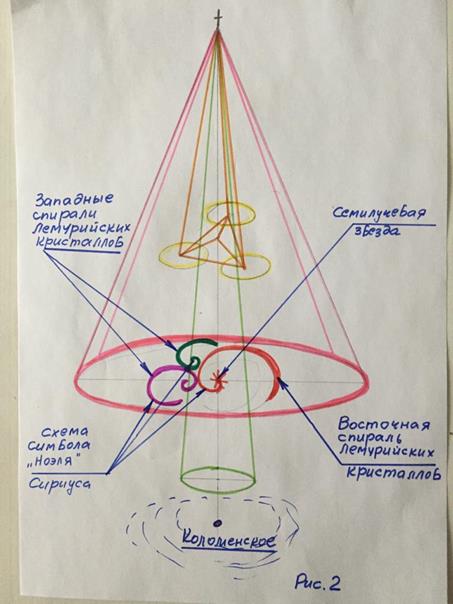 Западные
спирали
лемурийских
кристаллов
Семилучевая
звезда
Схема
символа
„Ноэля"
Сириуса
Восточная
спираль
лемурийских
кристаллов
Коломенское
Рис. 2